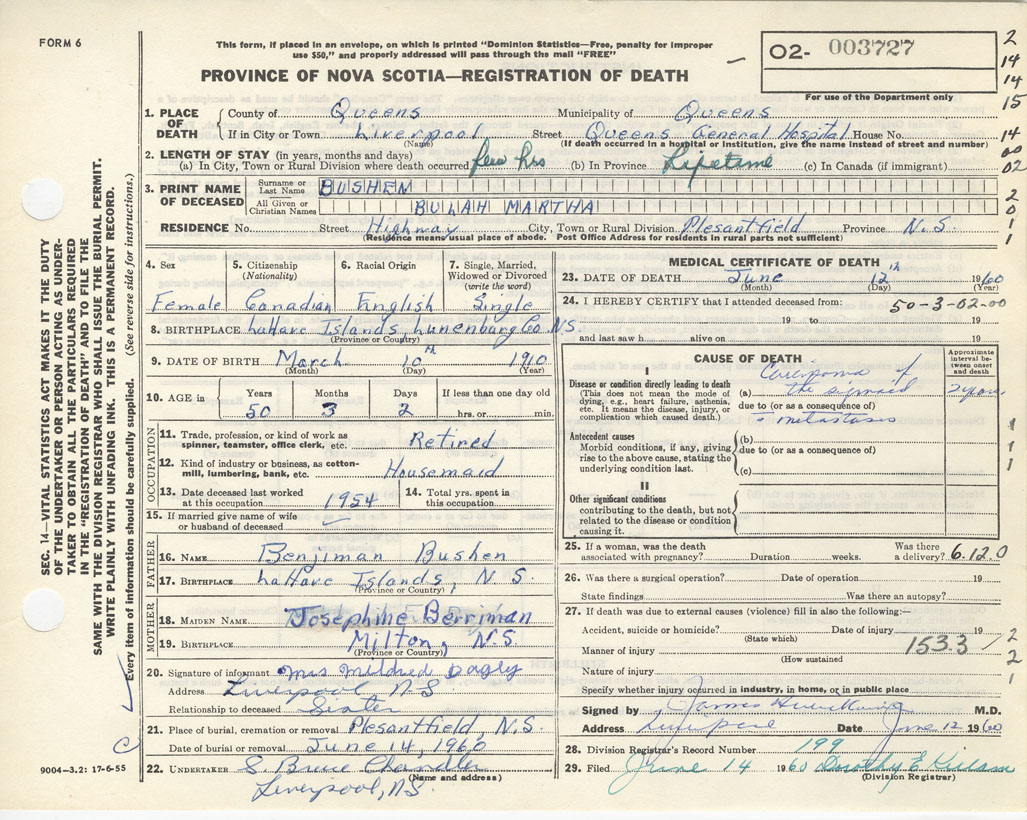 FORM 6
This form, if placed in an envelope, on which is printed "Dominion Statistics—Free, penalty for improper
use $50," and properly addressed will pass through the mail "FREE"
PROVINCE OF NOVA SCOTIA—REGISTRATION OF DEATH
O2- 003727
For use of the Department only
2
14
14
15
14
00
02
2
0
1
1
1. PLACE OF DEATH { County of Queens Municipality of Queens
If in City or Town Liverpool Street Queens General Hospital House No.
(Name) (If death occurred in a hospital or institution, give the name instead of street and number)
2. LENGTH OF STAY (in years, months and days)
(a) In City, Town or Rural Division where death occurred few hrs (b) In Province Lifetime (c) In Canada (if immigrant)
3. PRINT NAME OF DECEASED
Surname or Last Name BUSHEN
All Given or Christian Names BULAH MARTHA
RESIDENCE No. Street Highway City, Town or Rural Division Plesantfield Province N.S.
(Residence means usual place of abode. Post Office Address for residents in rural parts not sufficient)
4. Sex 5. Citizenship (Nationality) 6. Racial Origin 7. Single, Married, Widowed or Divorced (write the word)
Female Canadian English Single
8. BIRTHPLACE LaHave Islands Lunenburg Co N.S.
(Province or Country)
9. DATE OF BIRTH March 10th 1910
(Month) (Day) (Year)
10. AGE in Years Months Days If less than one day old
50 3 2 hrs. or min.
OCCUPATION
11. Trade, profession, or kind of work as spinner, teamster, office clerk, etc. Retired
12. Kind of industry or business, as cotton-mill, lumbering, bank, etc. Housemaid
13. Date deceased last worked at this occupation 1954 14. Total yrs. spent in this occupation
15. If married give name of wife or husband of deceased
FATHER
16. NAME Benjiman Bushen
17. BIRTHPLACE LaHave Islands, N.S.
(Province or Country)
MOTHER
18. MAIDEN NAME Josephine Berriman
19. BIRTHPLACE Milton, N.S.
(Province or Country)
20. Signature of informant Mrs Mildred Dagley
Address Liverpool N.S
Relationship to deceased Sister
21. Place of burial, cremation or removal Plesantfield, N.S.
Date of burial or removal June 14, 1960
22. UNDERTAKER S. Bruce Chandler
(Name and address)
Liverpool, N.S.
MEDICAL CERTIFICATE OF DEATH
23. DATE OF DEATH June 12th 1960
(Month) (Day) (Year)
24. I HEREBY CERTIFY that I attended deceased from: 50-3-02-00
19 to 19
and last saw h alive on 19
CAUSE OF DEATH
Approximate interval between onset and death
I
Disease or condition directly leading to death
(This does not mean the mode of dying, e.g., heart failure, asthenia, etc. It means the disease, injury, or complication which caused death.)
(a) Carcinoma of
the sigmoid 2 years
due to (or as a consequence of)
metastasis
Antecedent causes
Morbid conditions, if any, giving rise to the above cause, stating the underlying condition last.
(b)
due to (or as a consequence of)
(c)
1
1
1
II
Other significant conditions
contributing to the death, but not related to the disease or condition causing it.
25. If a woman, was the death associated with pregnancy? Duration weeks. Was there a delivery? 6.12.0
26. Was there a surgical operation? Date of operation 19
State findings Was there an autopsy?
27. If death was due to external causes (violence) fill in also the following:—
Accident, suicide or homicide? Date of injury 19
(State which)
Manner of injury 153.3
(How sustained
Nature of injury
2
2
1
Specify whether injury occurred in industry, in home, or in public place
Signed by James M.D.
Address Liverpool Date June 12 1960
28. Division Registrar's Record Number 199
29. Filed June 14 1960 Dorothy E
(Division Registrar)
SEC. 14—VITAL STATISTICS ACT MAKES IT THE DUTY
OF THE UNDERTAKER OR PERSON ACTING AS UNDER-
TAKER TO OBTAIN ALL THE PARTICULARS REQUIRED
IN THE "REGISTRATION OF DEATH" AND TO FILE THE
SAME WITH THE DIVISION REGISTRAR WHO SHALL ISSUE THE BURIAL PERMIT.
WRITE PLAINLY WITH UNFADING INK. THIS IS A PERMANENT RECORD.
Every item of information should be carefully supplied. (See reverse side for instructions.)
C
9004-3.2: 17-6-55